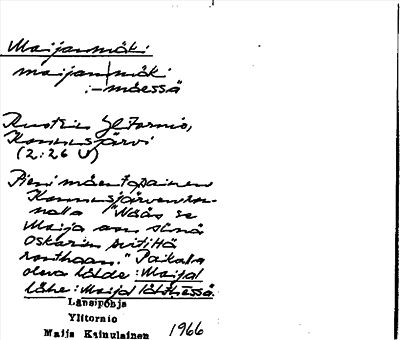 Maijanmäki
maijan|mäki
:-mäessä
Ruotsin Yltornio,
Konnusjärvi
(2:26 U)
Pieni mäentapainen
"Näås se
Maija on siinä
Oskarin
Paikalla
oleva lähde: Maijal
lähe: Maijal lähthessä.
Länsipohja
Ylitornio
Maija Kainulainen 1966